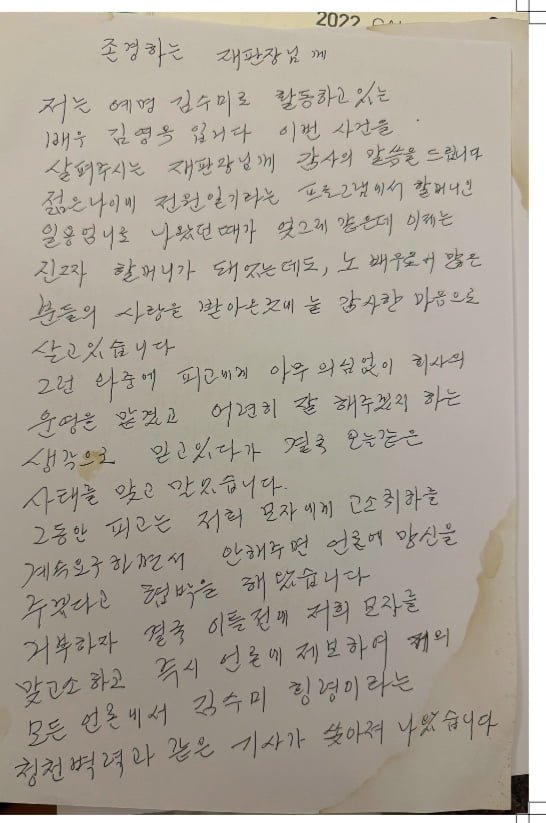 2022
존경하는 재판장님께
저는 예명 김수미로 활동하고있는
배우 김영옥 입니다 이번 사건을
살펴주시는 재판장님께 감사의 말씀을 드립니다
젊은나이에 전원일기라는 프로그램에서 할머니인
일용엄니로 나왔던때가 엊그제 같은데 이제는
진짜 할머니가 돼었는데도, 노배우로서 많은
분들의 사랑을 받아온것에 늘 감사한 마음으로
살고있습니다
그런 와중에 피고에게 아무의심없이 회사의
운영을 맡겼고 어련히 잘 해주겠지 하는
생각으로 믿고있다가 결국 오늘같은
사태를 맞고 말았습니다.
그동안 피고는 저희 모자에게 고소취하를
계속요구하면서 안해주면 언론에 망신을
주겠다고 협박을 해왔습니다
거부하자 결국 이틀전에 저희 모자를
맞고소하고 즉시 언론에 제보하여 거의
모든 언론에서 김수미 횡령이라는
청천벽력과 같은 기사가 쏟아져 나왔습니다